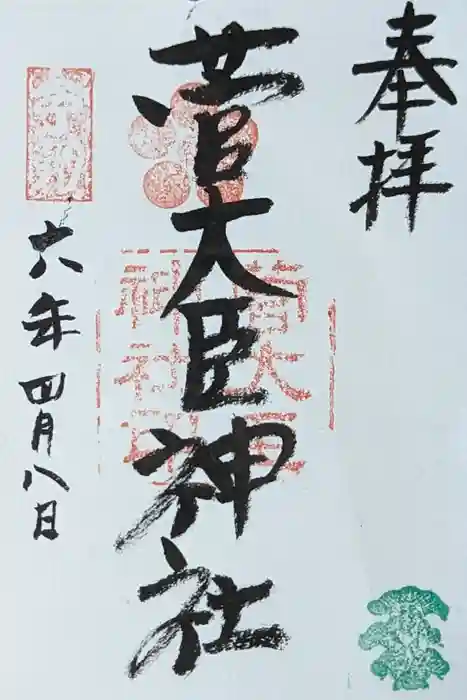 奉拝
菅大臣神社
菅大臣
神社印
六年四月八日